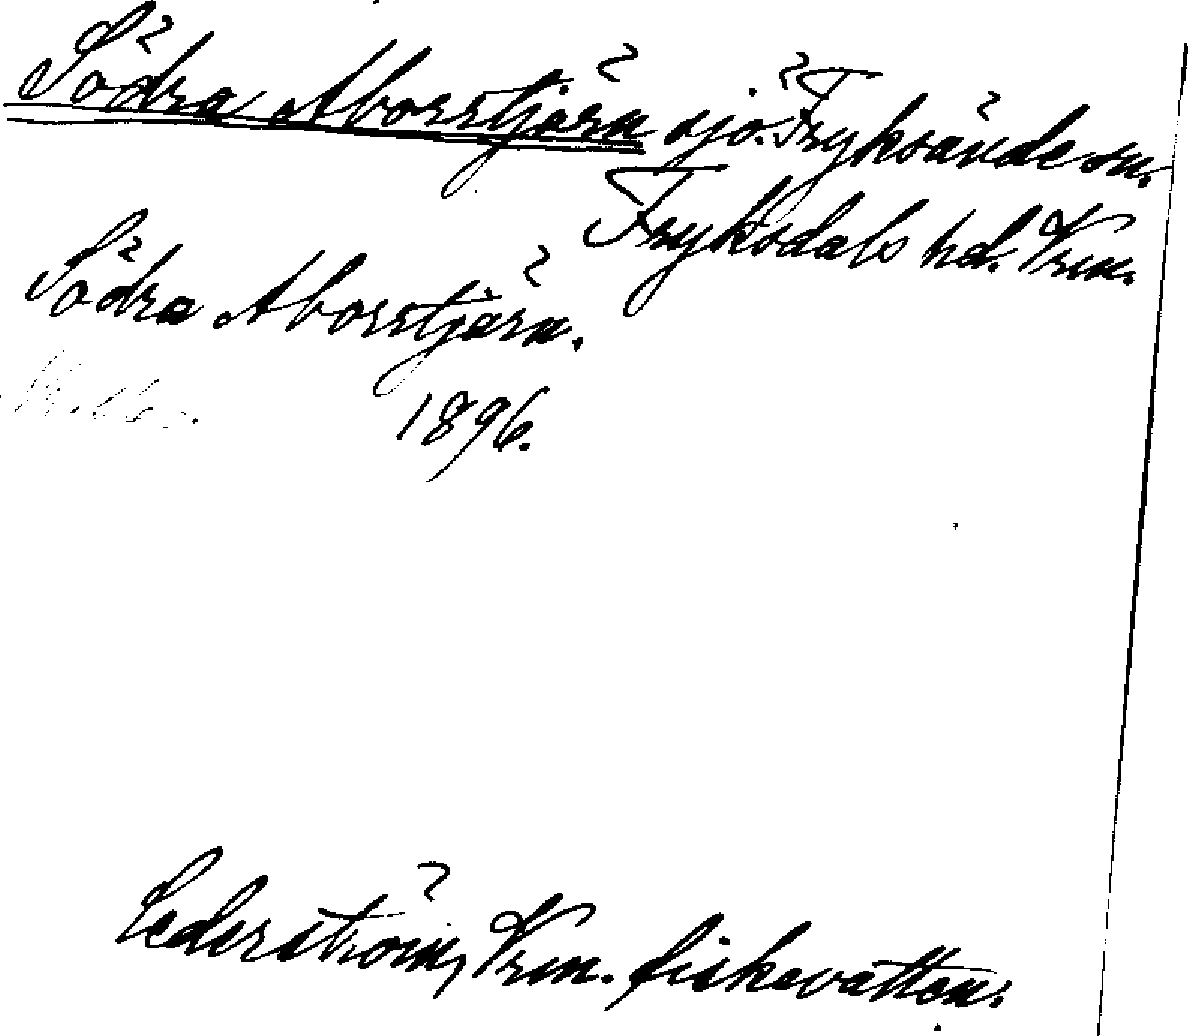 Södra Aborrtjärn sjö. Fryksände sn.
Fryksdals hd. Vrm.
Södra Aborrtjärn.
1896.
Cederström, Vrm. fiskevatten.